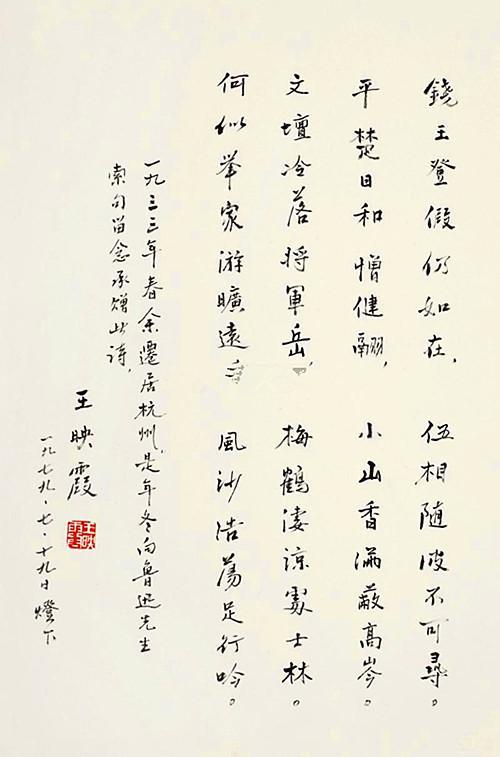 錢王登假仍如在，伍相随波不可尋。
平楚日和憎健翮，小山香滿蔽高岑。
文壇冷落将軍岳，梅鶴凄涼處士林。
何似举家游曠遠，風沙浩蕩足行吟。
一九三三年春余遷居杭州，是年冬向魯迅先生
索句留念承贈此诗，
王映霞
一九七九·七·十九日燈下
王映霞